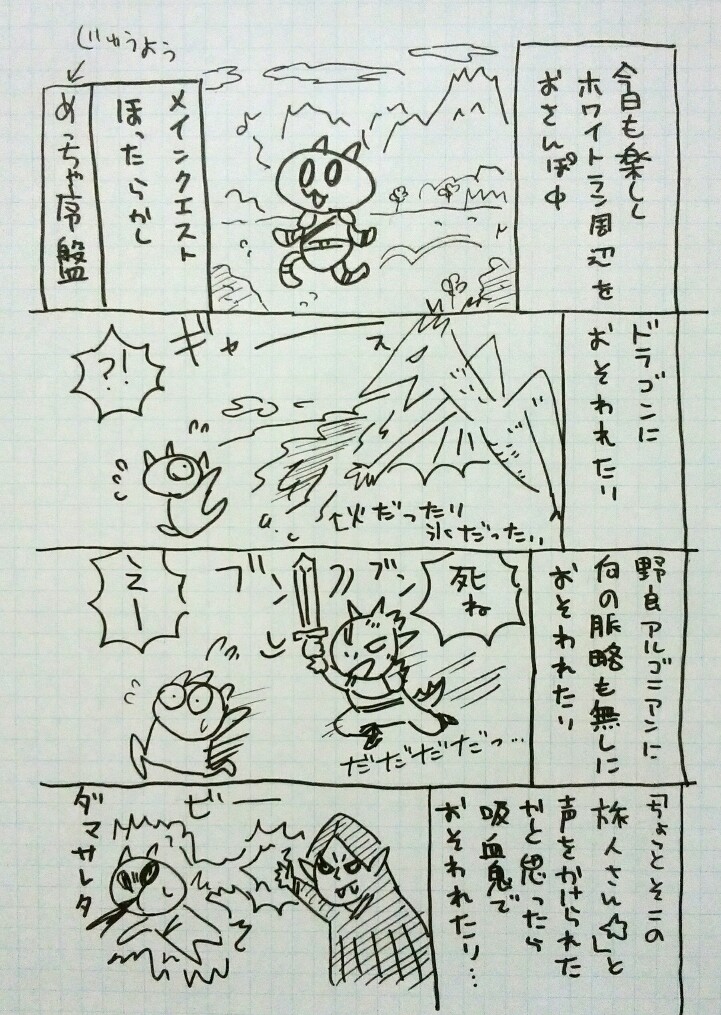 今日も楽しく
ホワイトラン周辺を
おさんぽ中
じゅうよう
メインクエスト
ほったらかし
めっちゃ序盤
ドラゴンに
おそわれたり
ギャース
?!
火だったり
氷だったり
野良アルゴニアンに
何の脈略も無しに
おそわれたり
死ね
ブンブン
えー
だだだだだっ…
「ちょっとそこの
旅人さん☆」と
声をかけられた
かと思ったら
吸血鬼で
おそわれたり…
ビー
ダマサレタ